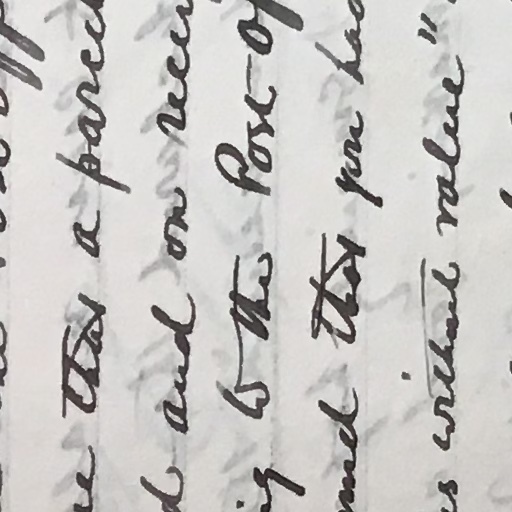 the Post Off
that a parcel
d and on recei
ing to the Post Of
ound that you had
as without value"